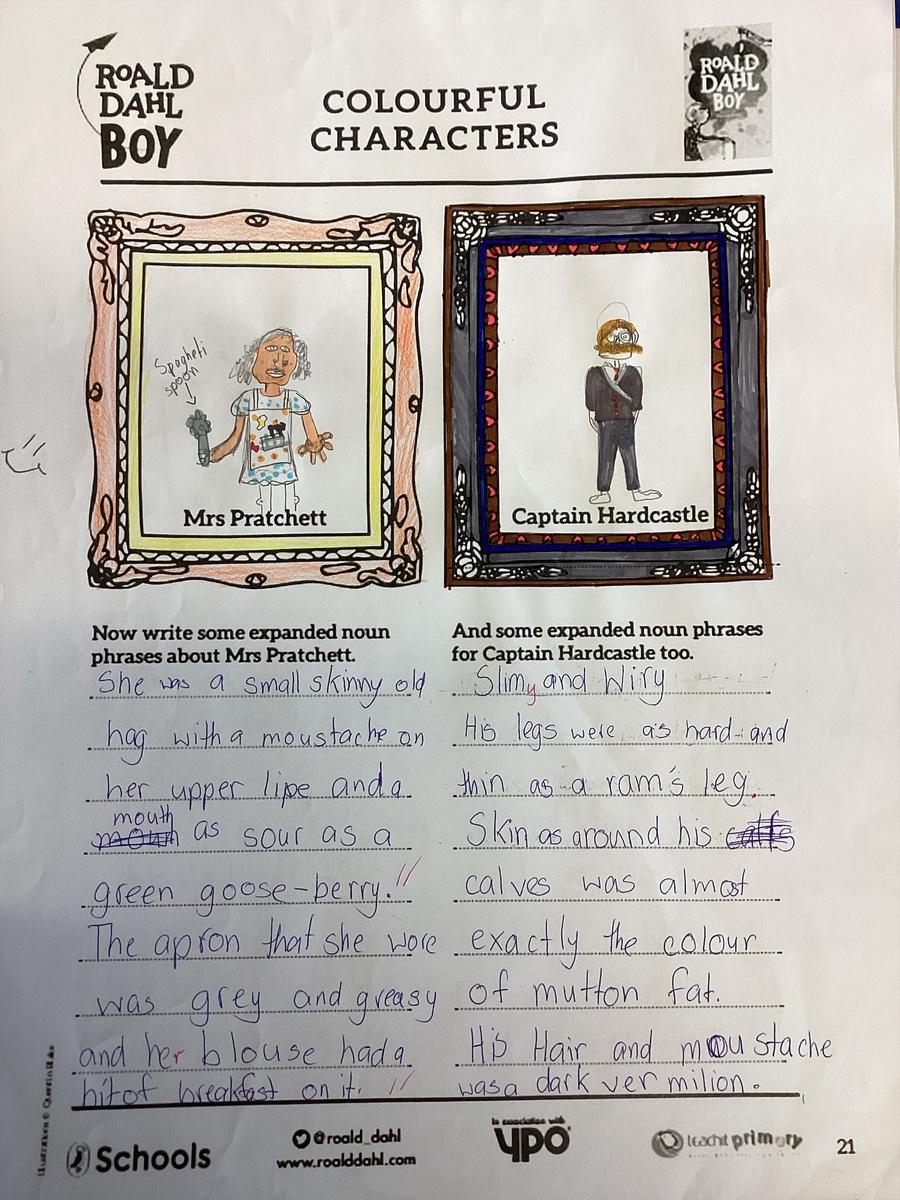 ROALD
DAHL
BOY
COLOURFUL
CHARACTERS
ROALD
DAHL
BOY
Spagheti
spoon
Mrs Pratchett
Captain Hardcastle
Now write some expanded noun
phrases about Mrs Pratchett.
She was a small skinny old
hag with a moustache on
her upper lipe and a
mouth as sour as a
green goose-berry.
The apron that she wore
was grey and greasy
and her blouse had a
bit of breakfast on it.
And some expanded noun phrases
for Captain Hardcastle too.
Slimy and Wiry
His legs were as hard and
thin as a ram's leg.
Skin as around his
calves was almost
exactly the colour
of mutton fat.
His Hair and moustache
was a dark vermilion.
Illustrations © Quentin Blake
Schools
@roald_dahl
www.roalddahl.com
In association with
YPO
teachit primary
21